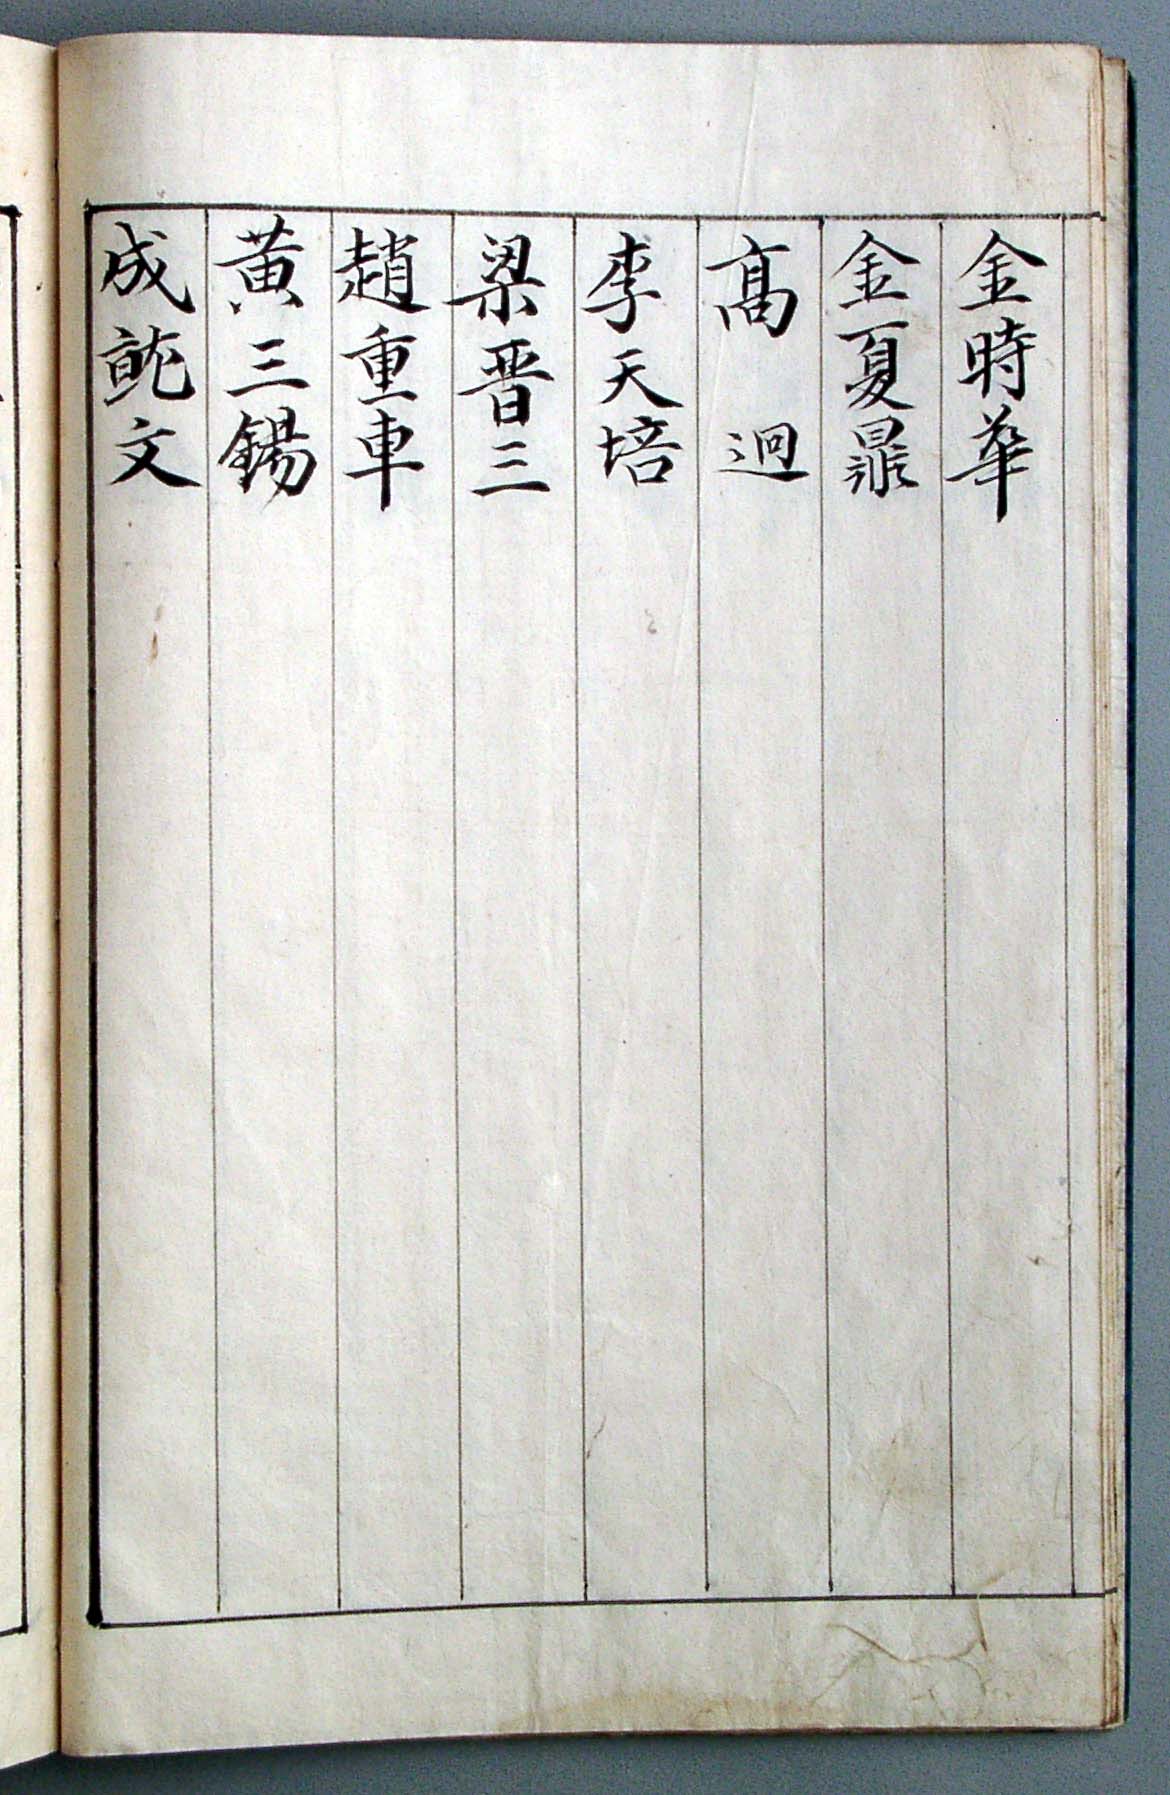 金時華
金夏鼎
髙迥
李天培
梁晋三
趙重車
黄三錫
成就文